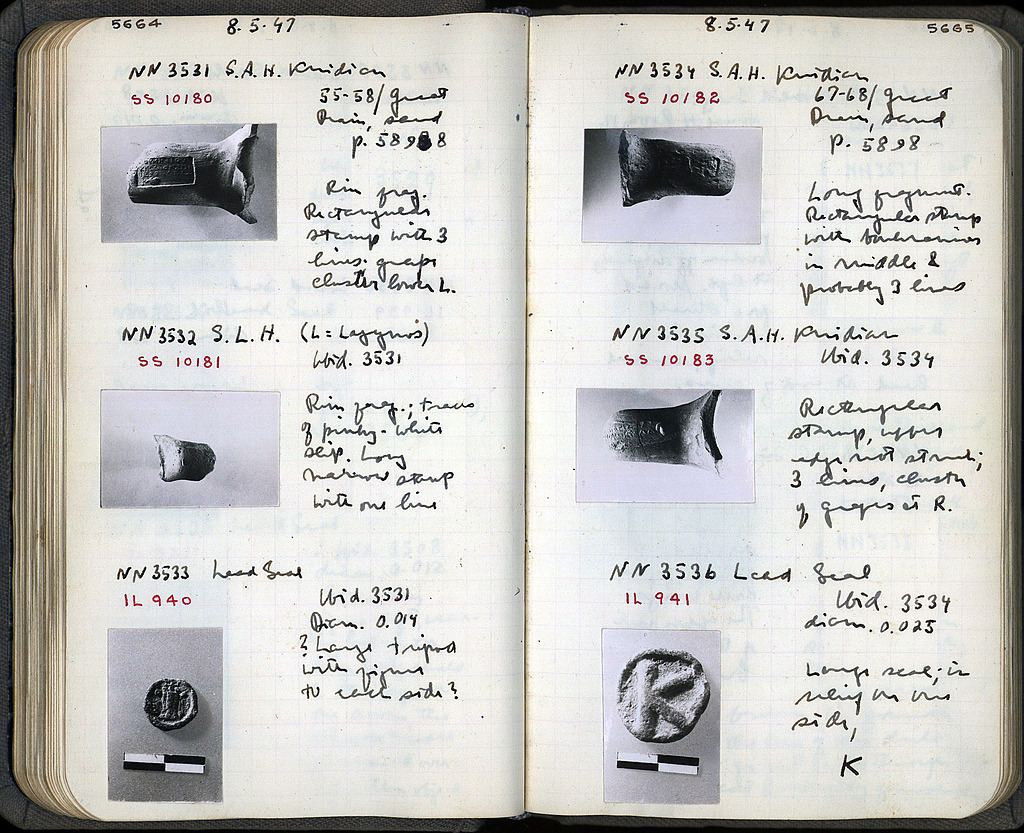 5664
8.5.47
NN 3531 S.A.H. Knidian
SS 10180
55-58/Great
Drain, sand
p. 5898
Rim frag.
Rectangular
stamp with 3
lines: grape
cluster lower L.
NN 3532 S.L.H. (L = Lagynos)
SS 10181
Ibid. 3531
Rim frag.; traces
of pinky-white
slip. Long
narrow stamp
with one line
NN 3533 Lead Seal
IL 940
Ibid. 3531
Diam. 0.014
? Large tripod
with figure
to each side?
8.5.47
5665
NN 3534 S.A.H. Knidian
SS 10182
67-68/Great
Drain, sand
p. 5898
Long fragment.
Rectangular stamp
with
in middle &
probably 3 lines
NN 3535 S.A.H. Knidian
SS 10183
Ibid. 3534
Rectangular
stamp, upper
edge not struck;
3 lines, cluster
of grapes at R.
NN 3536 Lead Seal
IL 941
Ibid. 3534
diam. 0.025
Large seal; in
relief on one
side,
K